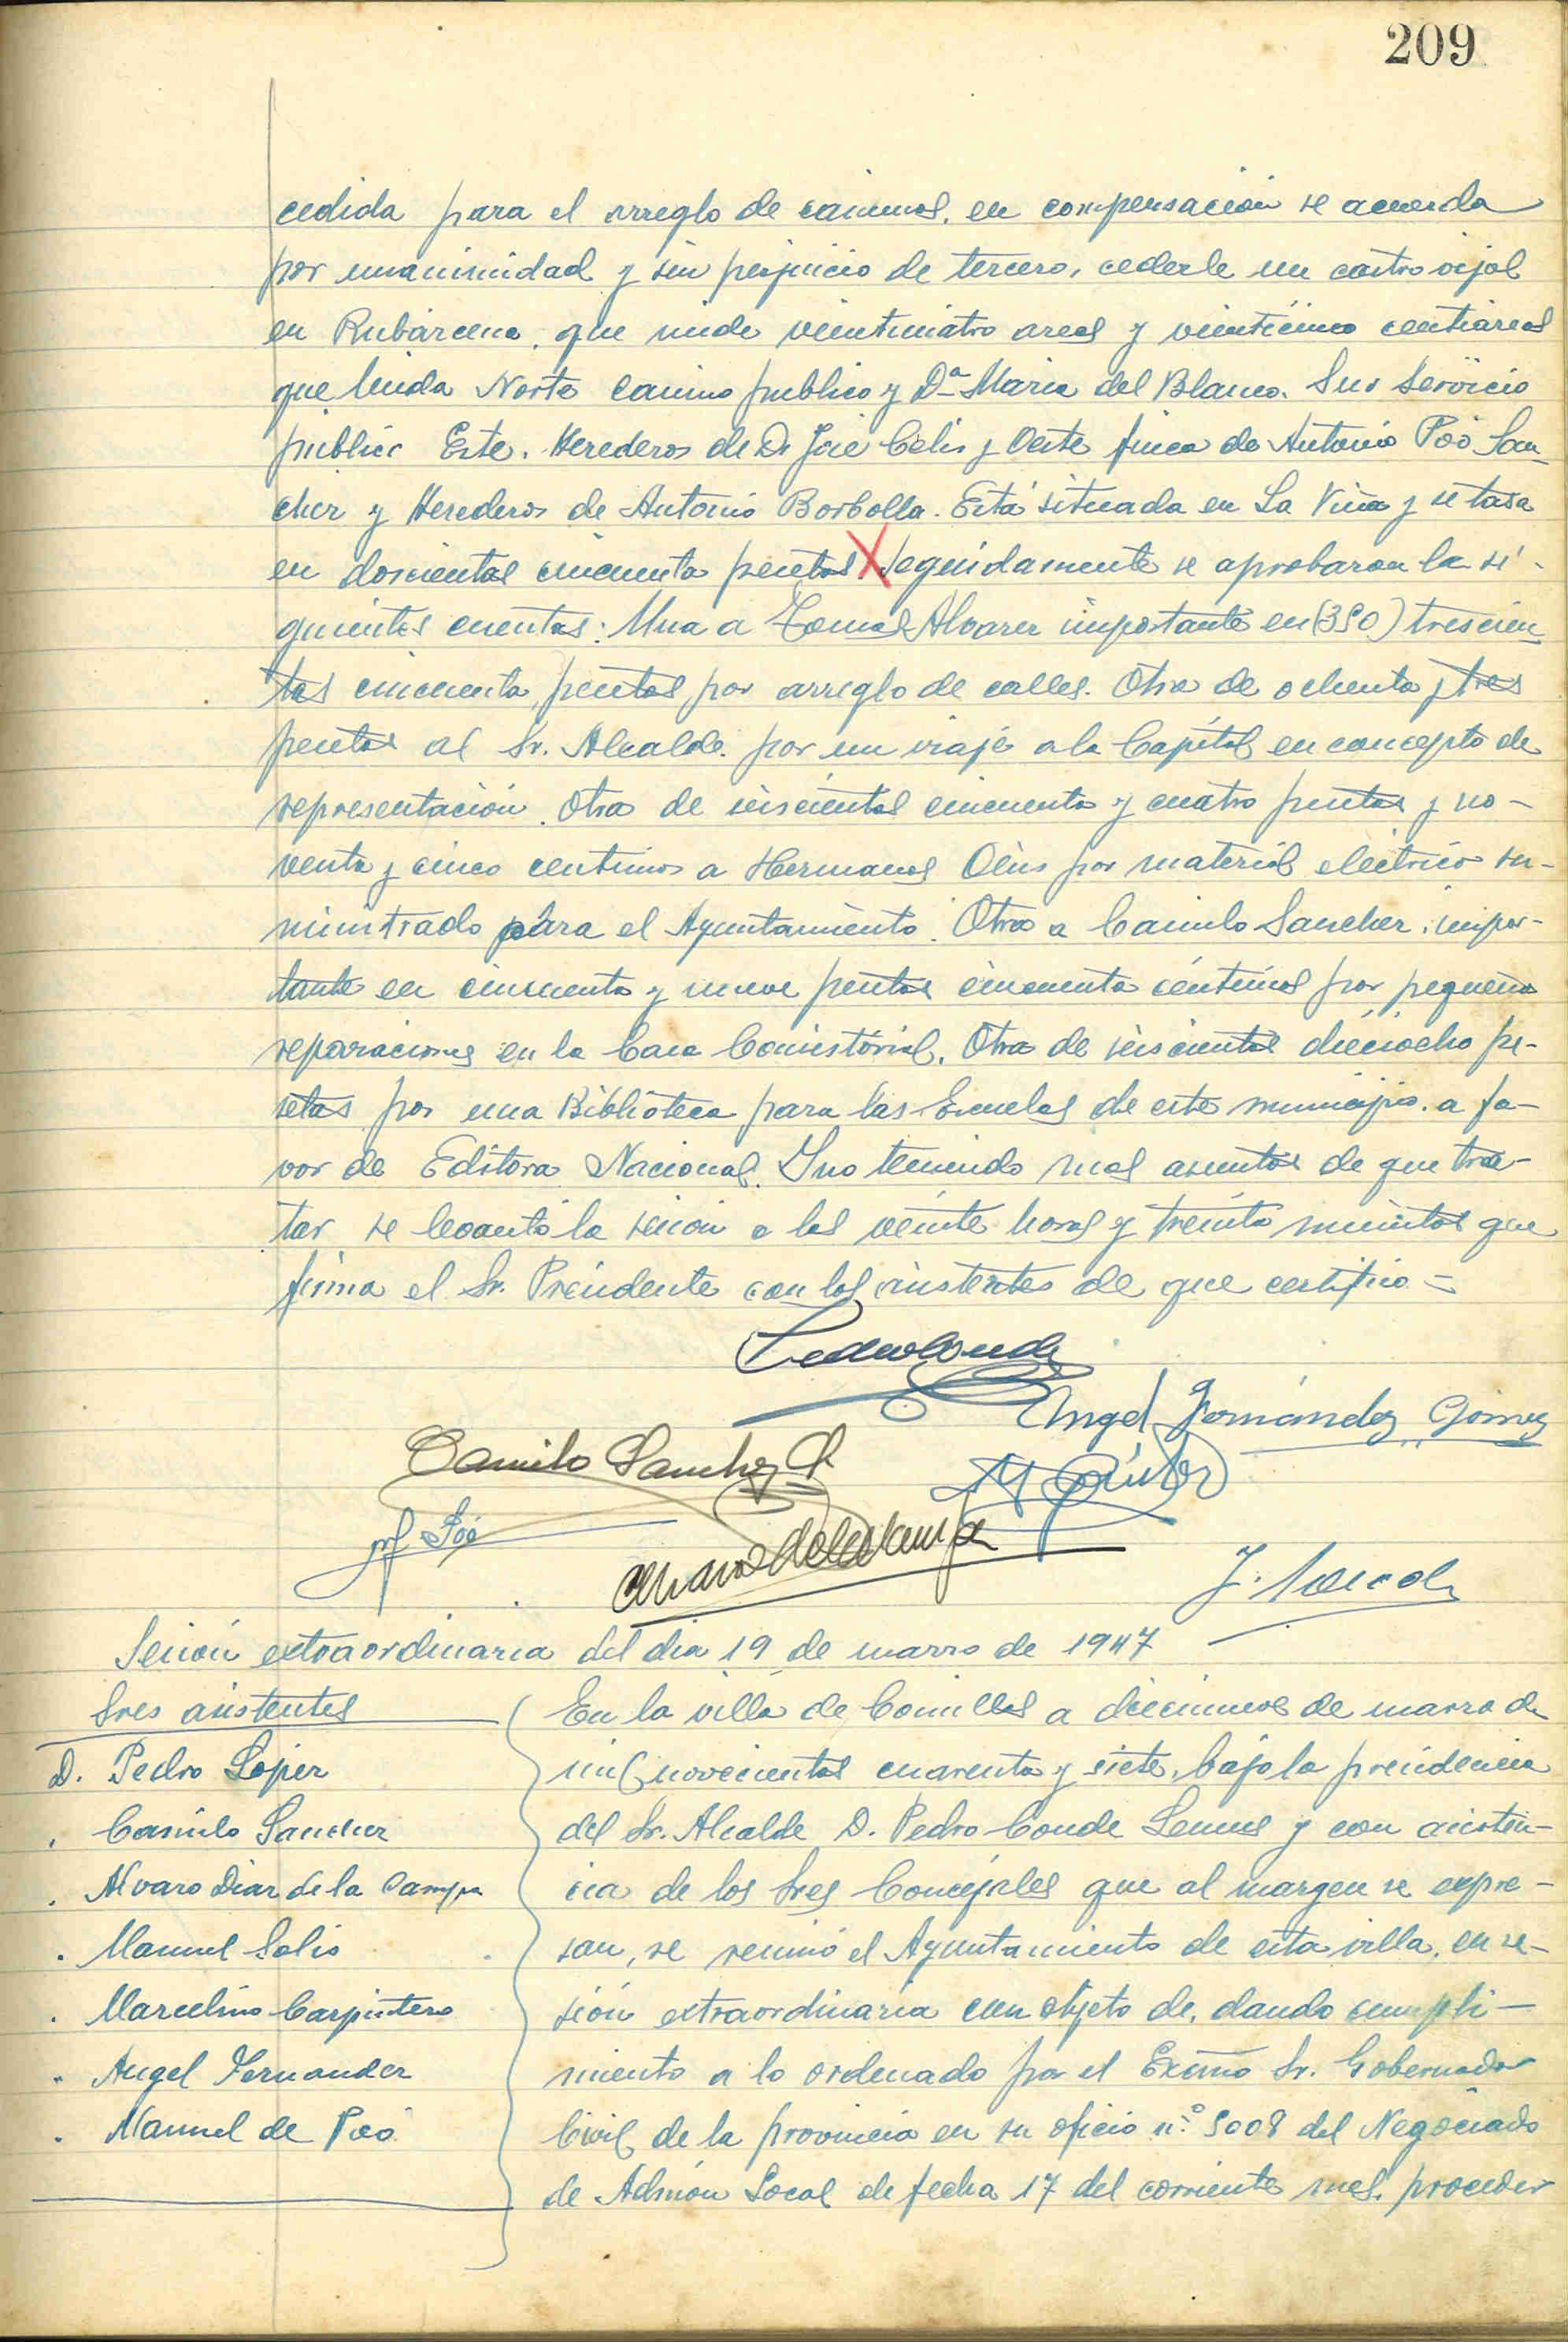 209
cedida para el arreglo de caminos, en compensación se acuerda
por unanimidad y sin perjuicio de tercero, cederle un castro vijal
en Rubárcena, que mide veinticuatro areas y veinticinco centiáreas
que linda Norte camino publico y Dª Maria del Blanco. Sur Servicio
público Este. Herederos de D. José Celis y Oeste finca de Antonio Poo San-
chez y Herederos de Antonio Borbolla. Está situada en La Viña y se tasa
en doscientas cincuenta pesetas X Seguidamente se aprobaron la si-
guientes cuentas: Una a Tomas Alvarez importante en (350) trescien
tas cincuenta pesetas por arreglo de calles. Otra de ochenta y tres
pesetas al Sr. Alcalde por un viaje a la Capital en concepto de
representación. Otra de seiscientas cincuenta y cuatro pesetas y no-
venta y cinco centimos a Hermanos por material eléctrico su-
ministrado para el Ayuntamiento. Otra a Camilo Sanchez, impor-
tante en cincuenta y nueve pesetas cincuenta céntimos por pequeñas
reparaciones en la Casa Consistorial. Otra de seiscientas dieciocho pe-
setas por una Biblioteca para las Escuelas de este municipio. a fa-
vor de Editora Nacional. Y no teniendo mas asuntos de que tra-
tar se levantó la sesion a las veinte horas y treinta minutos que
firma el Sr. Presidente con los asistentes de que certifico =
Pedro Conde
Angel Fernández Gómez
Camilo Sanchez
Poo
Alvaro de la Campa
Sesión extraordinaria del dia 19 de marzo de 1947
Sres asistentes
D. Pedro Lopez
" Camilo Sanchez
" Alvaro Diaz de la Campa
" Manuel Solis
" Marcelino Carpintero
" Angel Fernandez
" Manuel de Poo
En la villa de Comillas a diecinueve de marzo de
mil novecientos cuarenta y siete, bajo la presidencia
del Sr. Alcalde D. Pedro Conde Lemus y con asisten-
cia de los Sres Concejales que al margen se expre-
san, se reunió el Ayuntamiento de esta villa, en se-
sión extraordinaria con objeto de, dando cumpli-
miento a lo ordenado por el Excmo Sr. Gobernador
Civil de la provincia en su oficio nº 5008 del Negociado
de Admón Local de fecha 17 del corriente mes, proceder